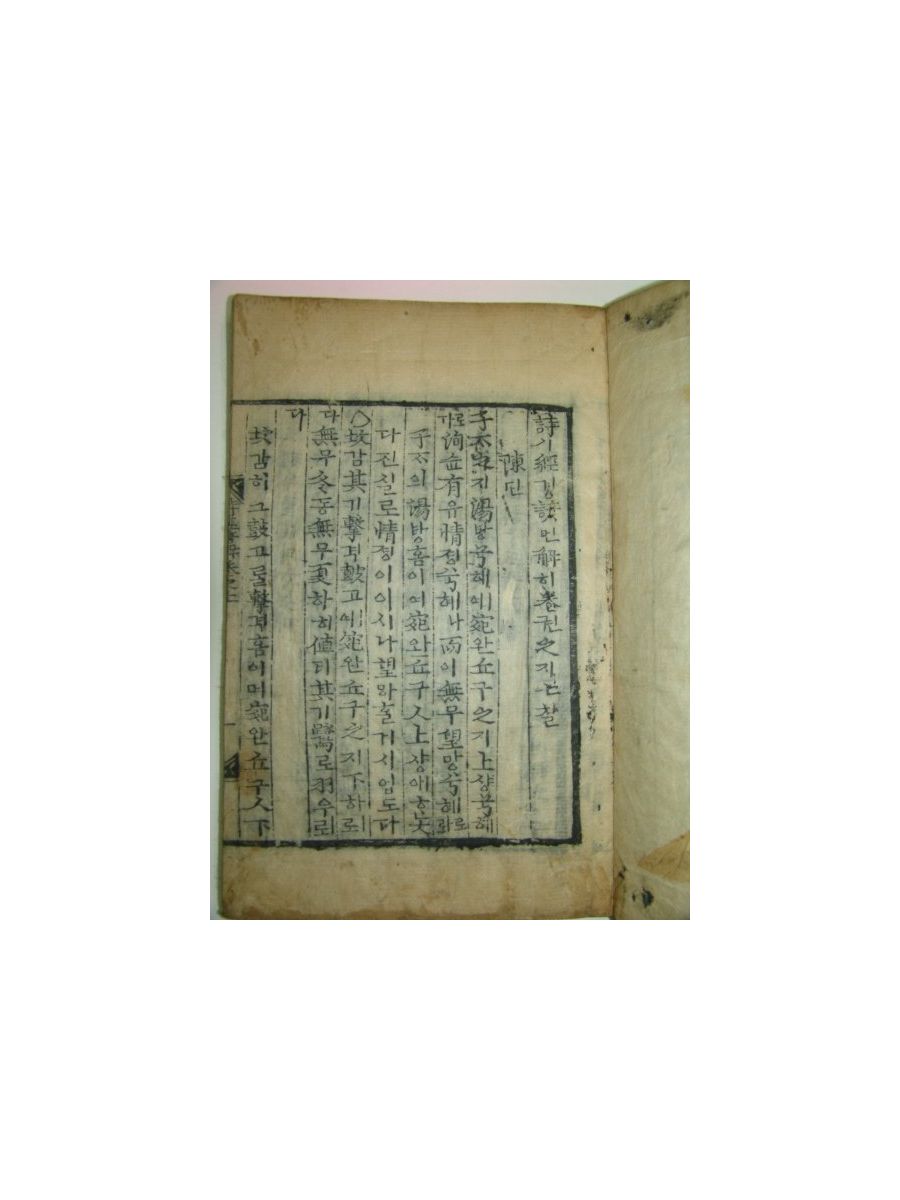 詩시經경諺언解히卷권之지七칠
陳딘
子ᄌᆞ之지湯탕兮혜여宛완丘구之지上샹兮혜
로다洵슌有유情졍兮혜나而이無무望망兮혜로다
子ᄌᆞ의湯탕홈이여宛완丘구人上샹애ᄒᆞ놋
다진실로情졍이이시나望망홀거시업도다
○坎감其기擊격鼓고여宛완丘구之지下하로
다無무冬동無무夏하히値티其기鷺로羽우로
다
坎감히그鼓고ᄅᆞᆯ擊격홈이여宛완丘구人下